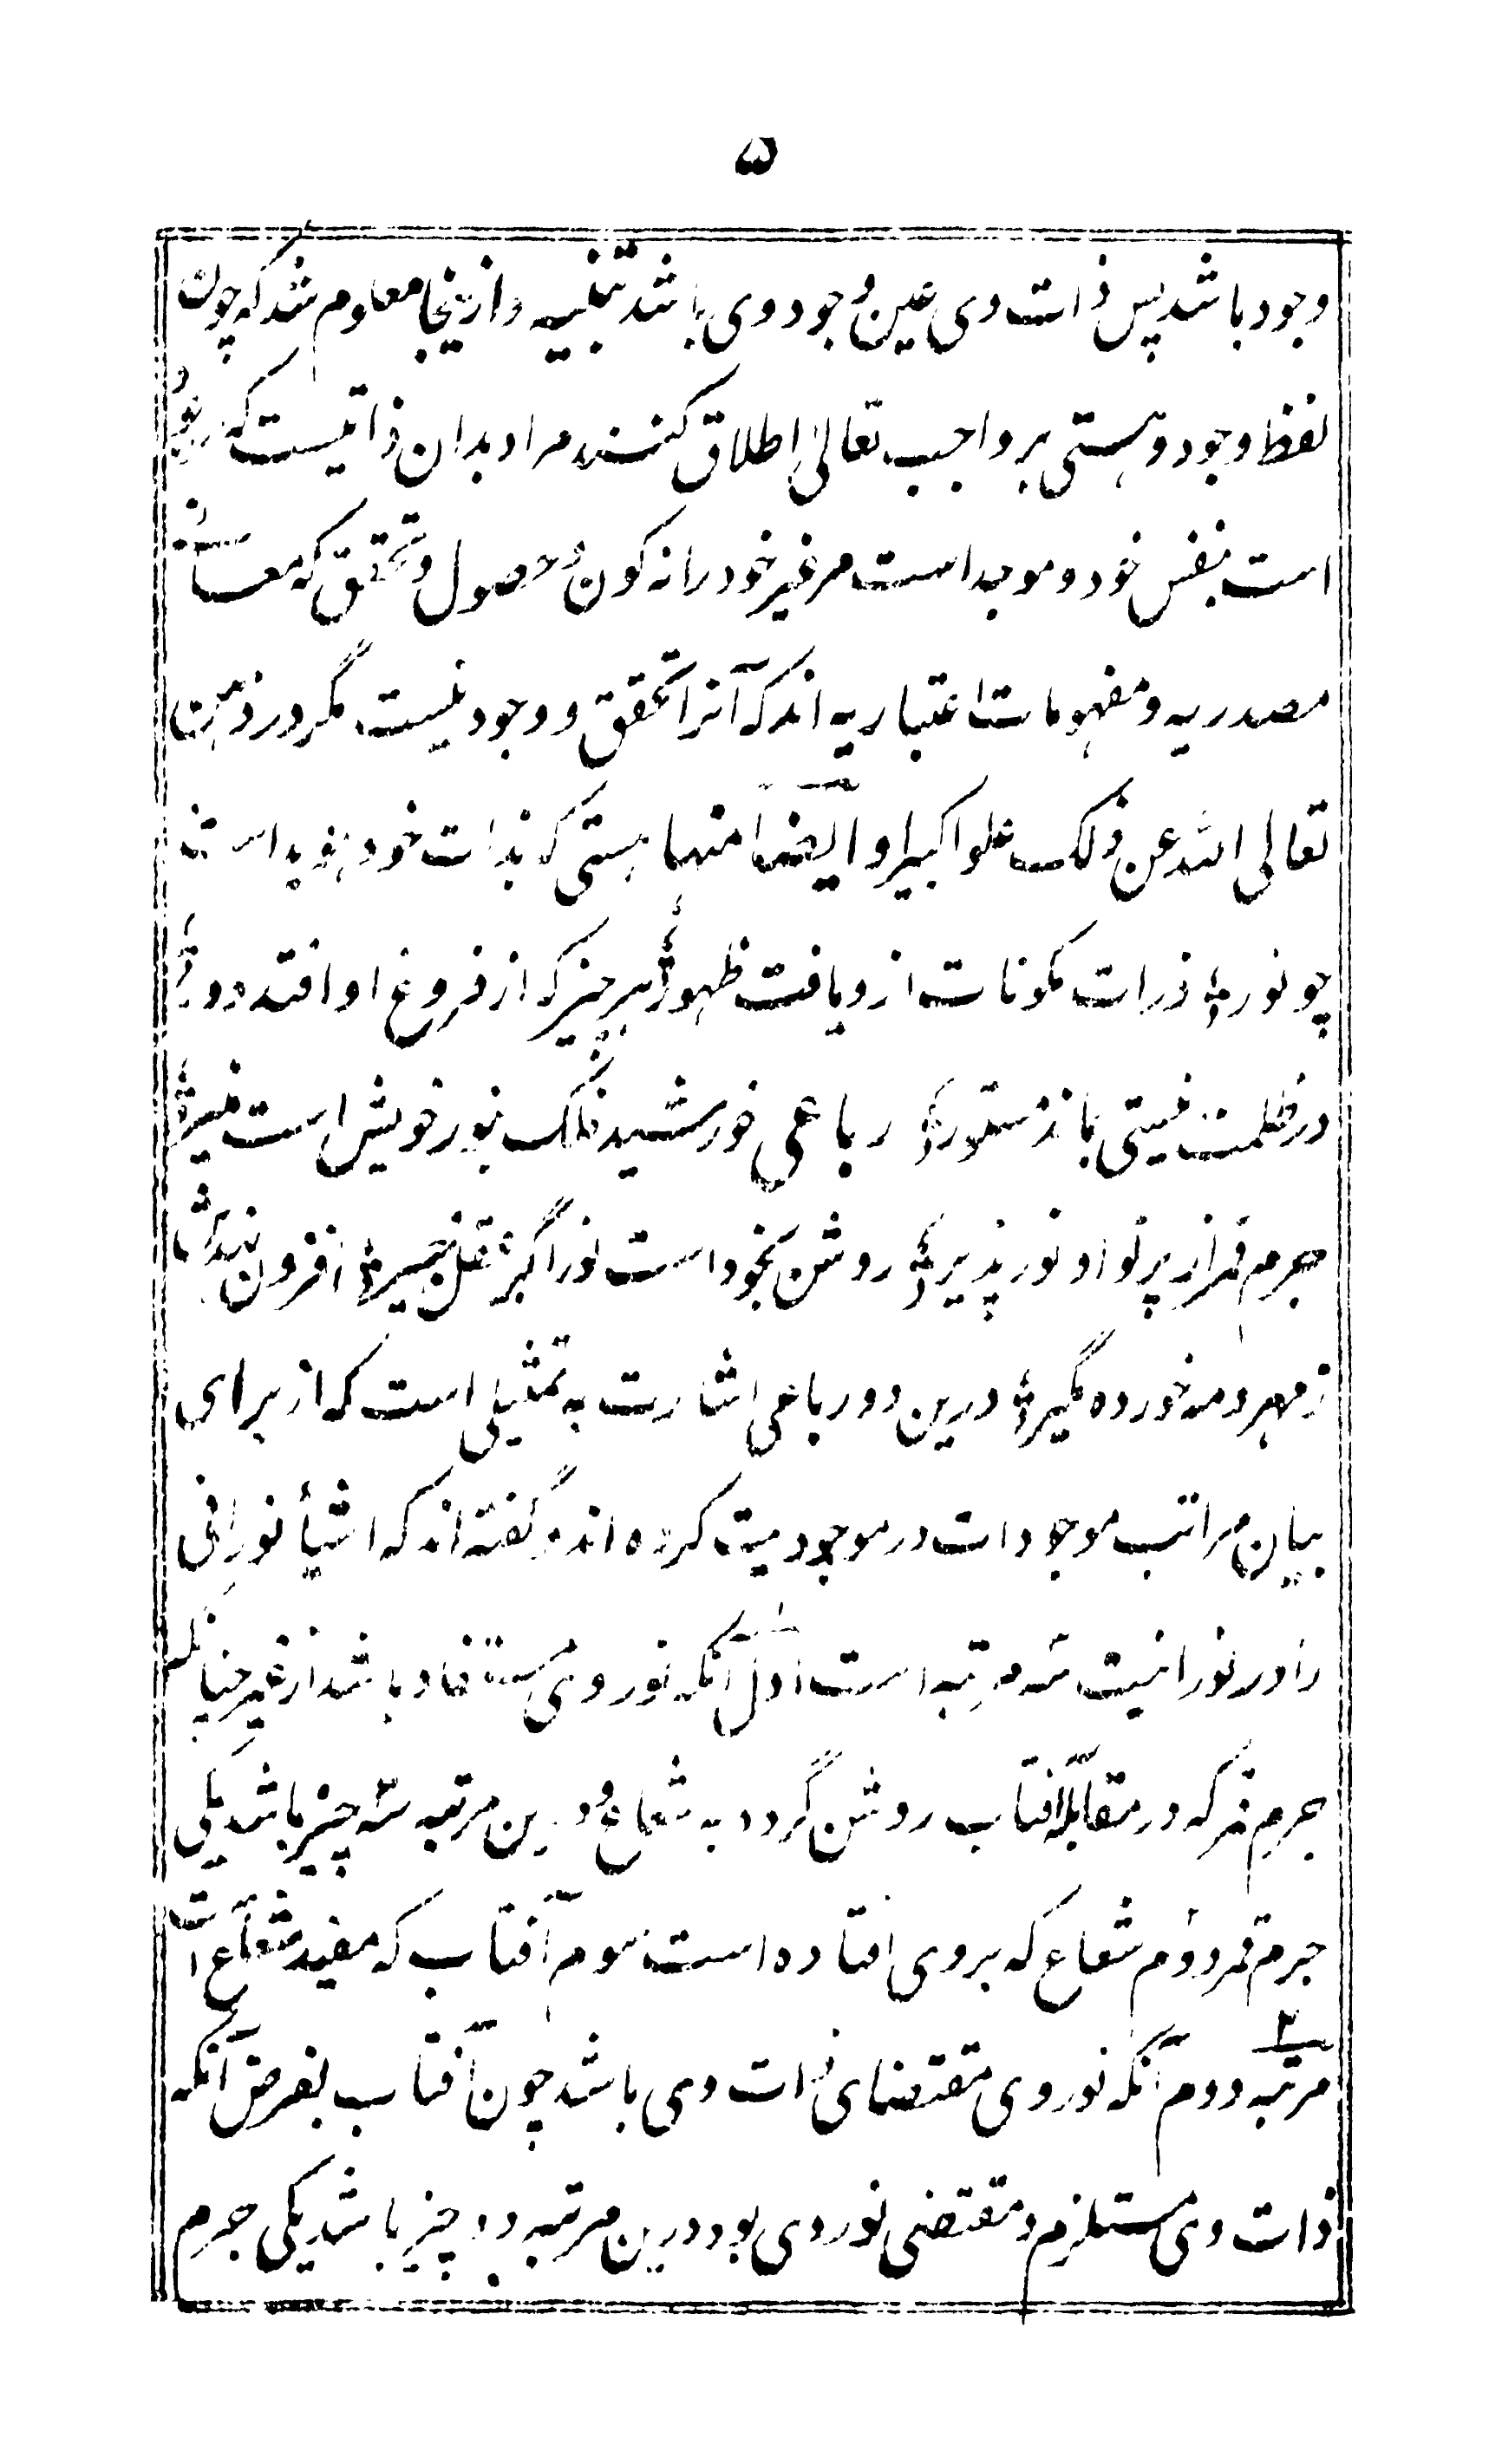 ۵
وجود باشد پس ذات وی عین وجود وی باشد تنبیه و ازینجا معلوم شد که چون
لفظ وجود و هستی بر واجب تعالی اطلاق کنند مراد بدان ذاتیست که موجود
است بنفس خود و موجد است مر غیر خود را نه کون و حصول و تحقق که معانی
مصدریه و مفهومات اعتباریه اند که آنرا تحقق و وجود نیست مگر در ذهن
تعالی الله عن ذلک علوا کبیرا و ایضا منها هستی که بذات خود هویداست
چو نور ذرات مکونات ازو یافت ظهور هر چیز که از فروغ او افتد دور
در ظلمت نیستی بماند مستور رباعی خورشید فلک بنور خویش است منیر
جرم قمر از پرتو او نور پذیر روشن بخود است نور اگر عقل خبیر افزون نهدش
ز مهر و مه خورده مگیر درین دو رباعی اشارت به تمثیلی است که از برای
بیان مراتب موجودات در موجودیت کرده اند و گفته اند که اشیأ نورانی
را در نورانیت سه مرتبه است اول آنکه نور وی مستفاد باشد از غیر چنانکه
جرم قمر که در مقابله آفتاب روشن گردد به شعاع و درین مرتبه سه چیز باشد یکی
جرم قمر دوم شعاع که بر وی افتاده است سوم آفتاب که مفید شعاع است
مرتبه ۲ دوم آنکه نور وی مقتضای ذات وی باشد چون آفتاب بفرض آنکه
ذات وی مستلزم و مقتضی نور وی بود درین مرتبه دو چیز باشد یکی جرم